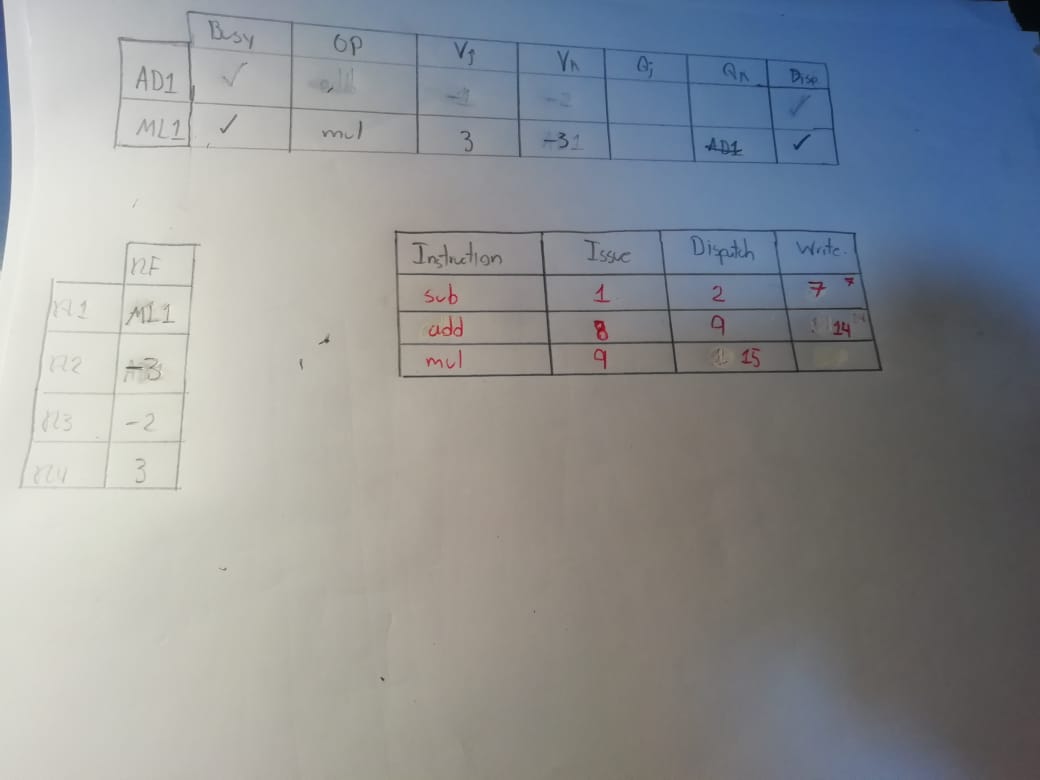 Busy OP Vj Vk Qj Qk Disp
AD1 ✓ add -1 -2 ✓
ML1 ✓ mul 3 AD1 ✓
RF
R1 ML1
R2 -3
R3 -2
R4 3
Instruction Issue Dispatch Write.
sub 1 2 7 7
add 8 9 14
mul 9 15